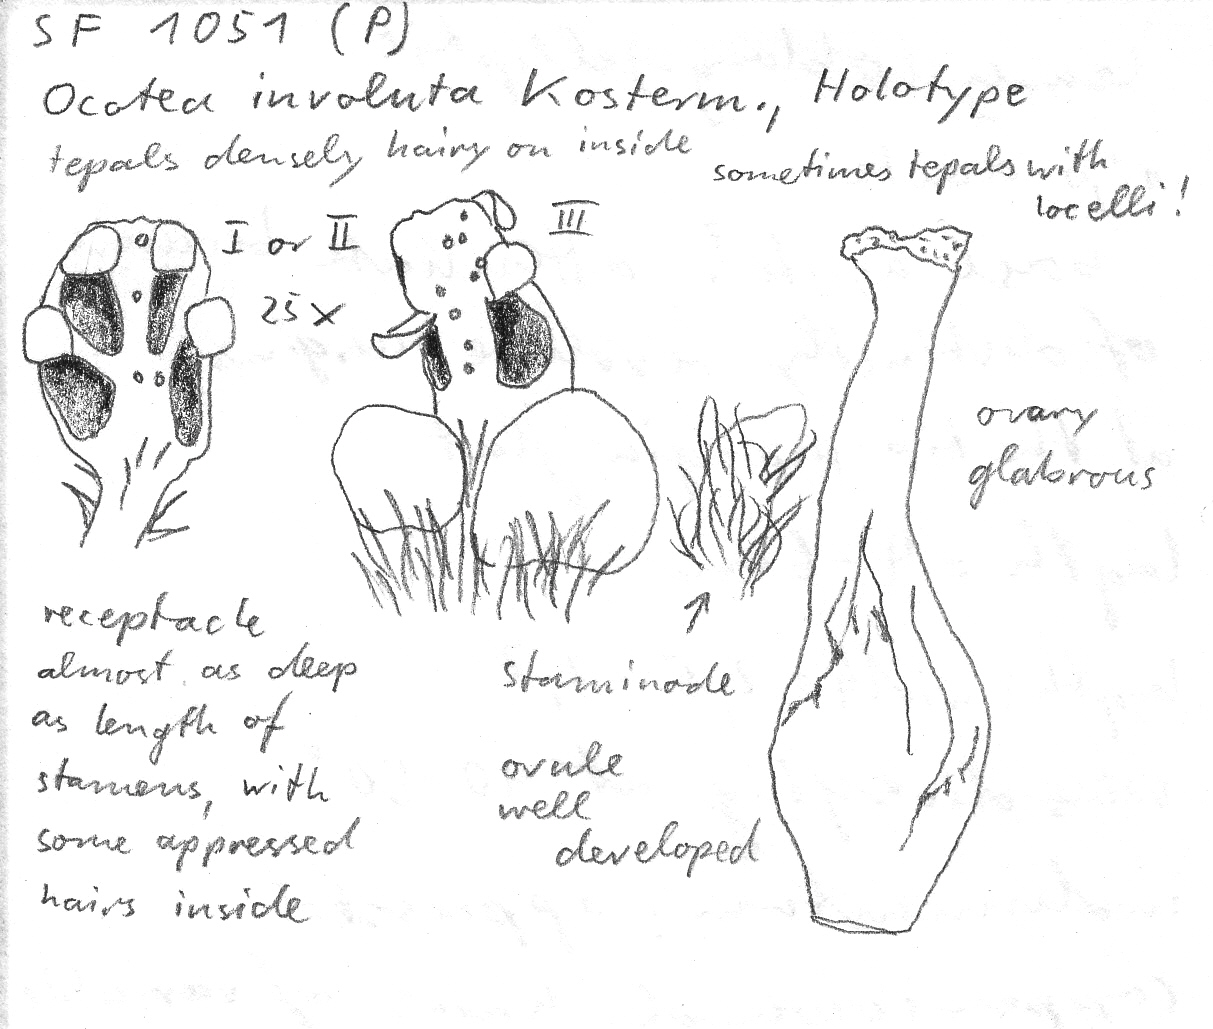 SF 1051 (P)
Ocotea involuta Kosterm., Holotype
tepals densely hairy on inside
sometimes tepals with
locelli!
I or II
III
25 x
ovary
glabrous
receptacle
almost as deep
as length of
stamens, with
some appressed
hairs inside
staminode
ovule
well
developed